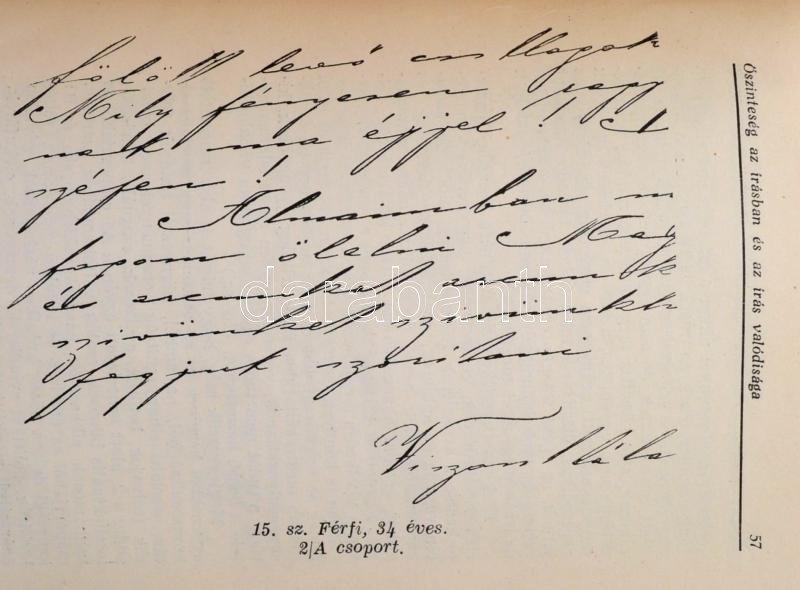 fölött levő csillagok
Mily fényesen ragy
nak ma éjjel! A
szélén!
Álmaimban m
fogom ölelni Mag
és arcunkat arcunk
szivünket szivünkh
fogjuk szoritani
Viszontlátá
15. sz. Férfi, 34 éves.
2/A csoport.
Őszinteség az írásban és az írás valódisága
57
darabanth